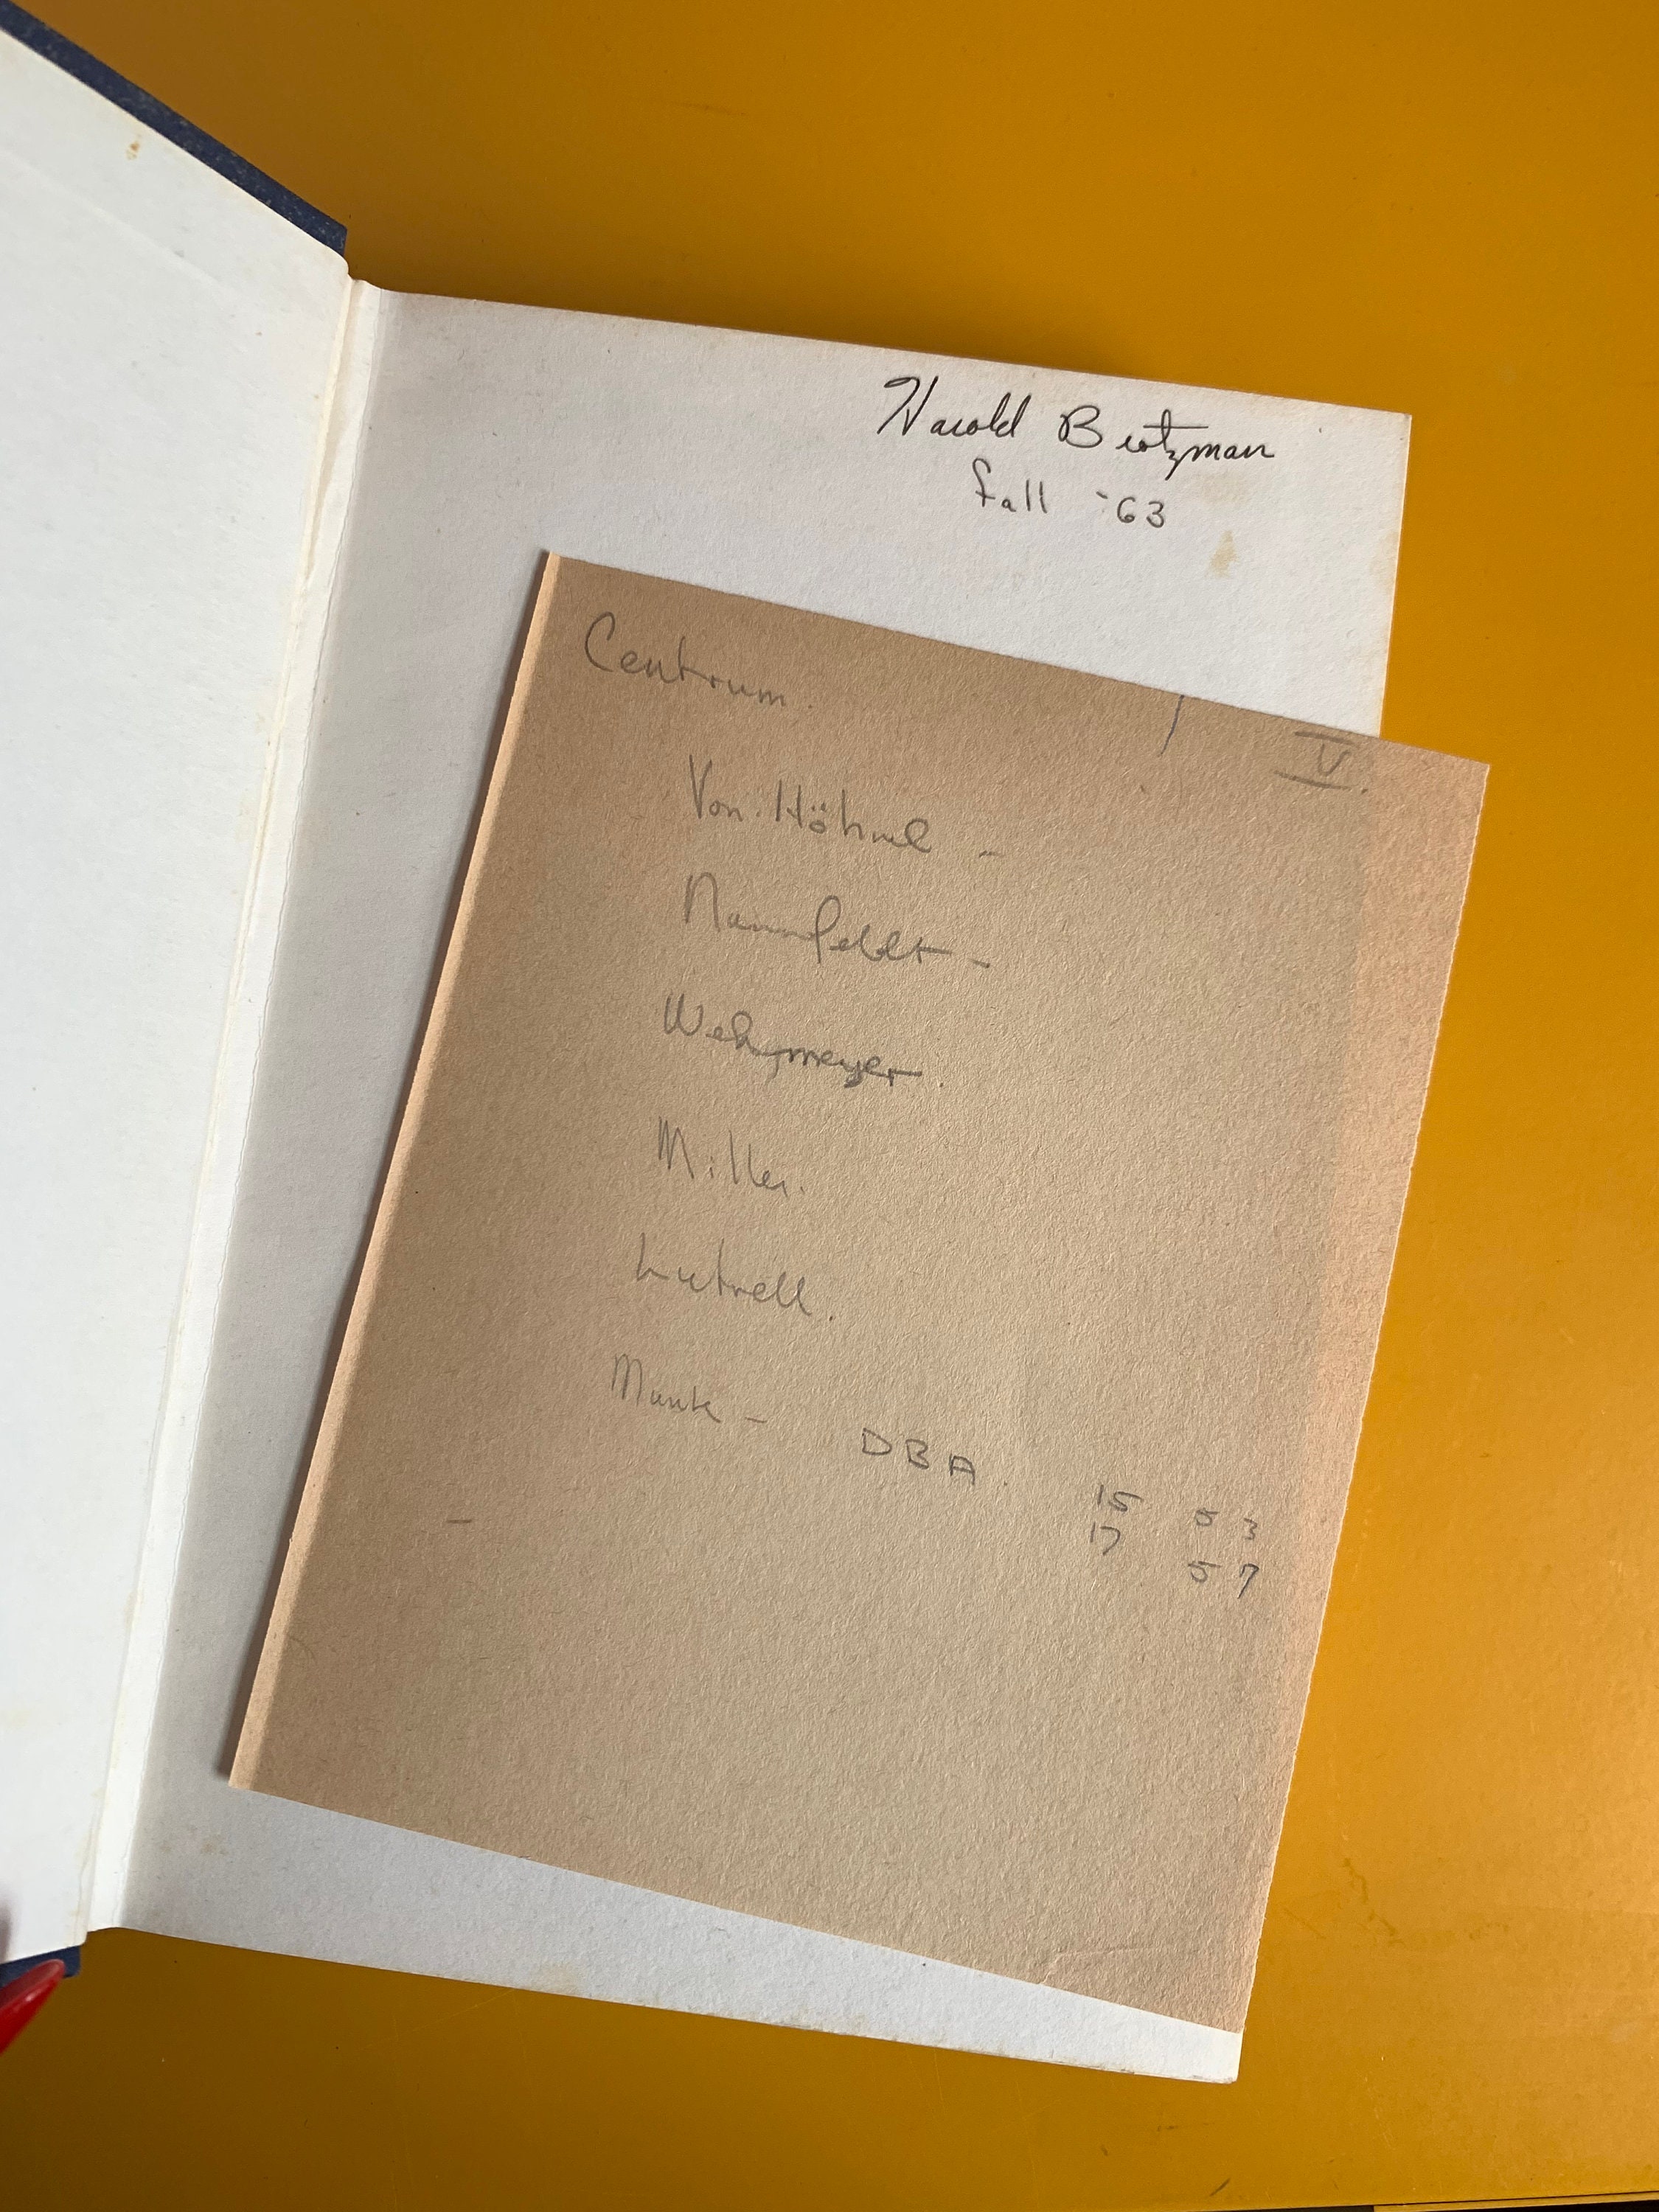 Harold Bertzman
fall '63
Centrum.
V.
Von Höhnel -
Nannfeldt -
Wehmeyer.
Miller.
Lutrell.
Munk -
DBA. 15 53
17
57